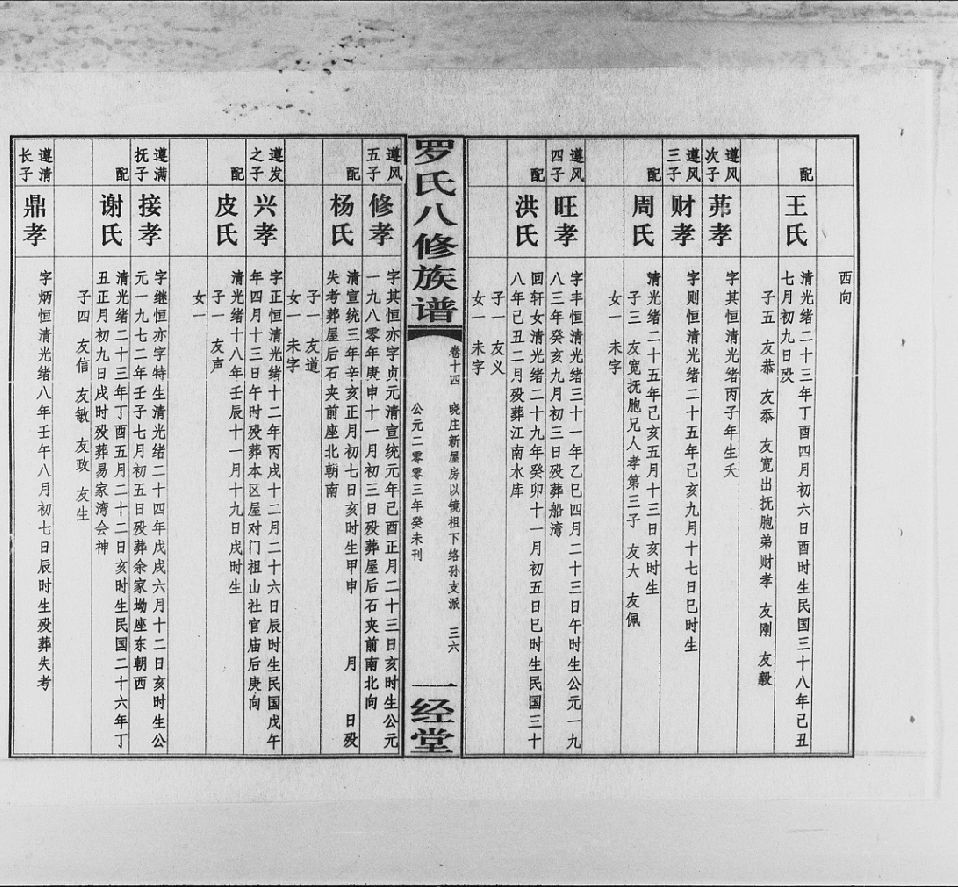 西向
配
王氏
清光绪二十三年丁酉四月初六日酉时生民国三十八年己丑
七月初九日殁
子五 友恭 友忝 友宽出抚胞弟财孝 友刚 友毅
遵风
次子
茀孝
字其恒清光绪丙子年生夭
遵风
三子
财孝
字则恒清光绪二十五年己亥九月十七日巳时生
配
周氏
清光绪二十五年己亥五月十三日亥时生
子三 友宽抚胞兄人孝第三子 友大 友佩
女一 未字
遵风
四子
旺孝
字丰恒清光绪三十一年乙巳四月二十三日午时生公元一九
八三年癸亥九月初三日殁葬船湾
配
洪氏
回轩女清光绪二十九年癸卯十一月初五日巳时生民国三十
八年己丑二月殁葬江南水库
子一 友义
女一 未字
罗氏八修族谱
卷十四 晓庄新屋房以镜祖下络孙支派 三六
公元二零零三年癸未刊
一经堂
遵风
五子
修孝
字其恒亦字贞元清宣统元年己酉正月二十三日亥时生公元
一九八零年庚申十一月初三日殁葬屋后石夹前南北向
配
杨氏
清宣统三年辛亥正月初七日亥时生甲申 月 日殁
失考葬屋后石夹前座北朝南
子一 友道
女一 未字
遵发
之子
兴孝
字正恒清光绪十二年丙戌十二月二十六日辰时生民国戊午
年四月十三日午时殁葬本区屋对门祖山社官庙后庚向
配
皮氏
清光绪十八年壬辰十一月十九日戌时生
子一 友声
女一
遵满
抚子
接孝
字继恒亦字特生清光绪二十四年戊戌六月十二日亥时生公
元一九七二年壬子七月初五日殁葬余家坳座东朝西
配
谢氏
清光绪二十三年丁酉五月二十二日亥时生民国二十六年丁
丑正月初九日戌时殁葬易家湾会神
子四 友信 友敏 友玫 友生
遵清
长子
鼎孝
字炳恒清光绪八年壬午八月初七日辰时生殁葬失考